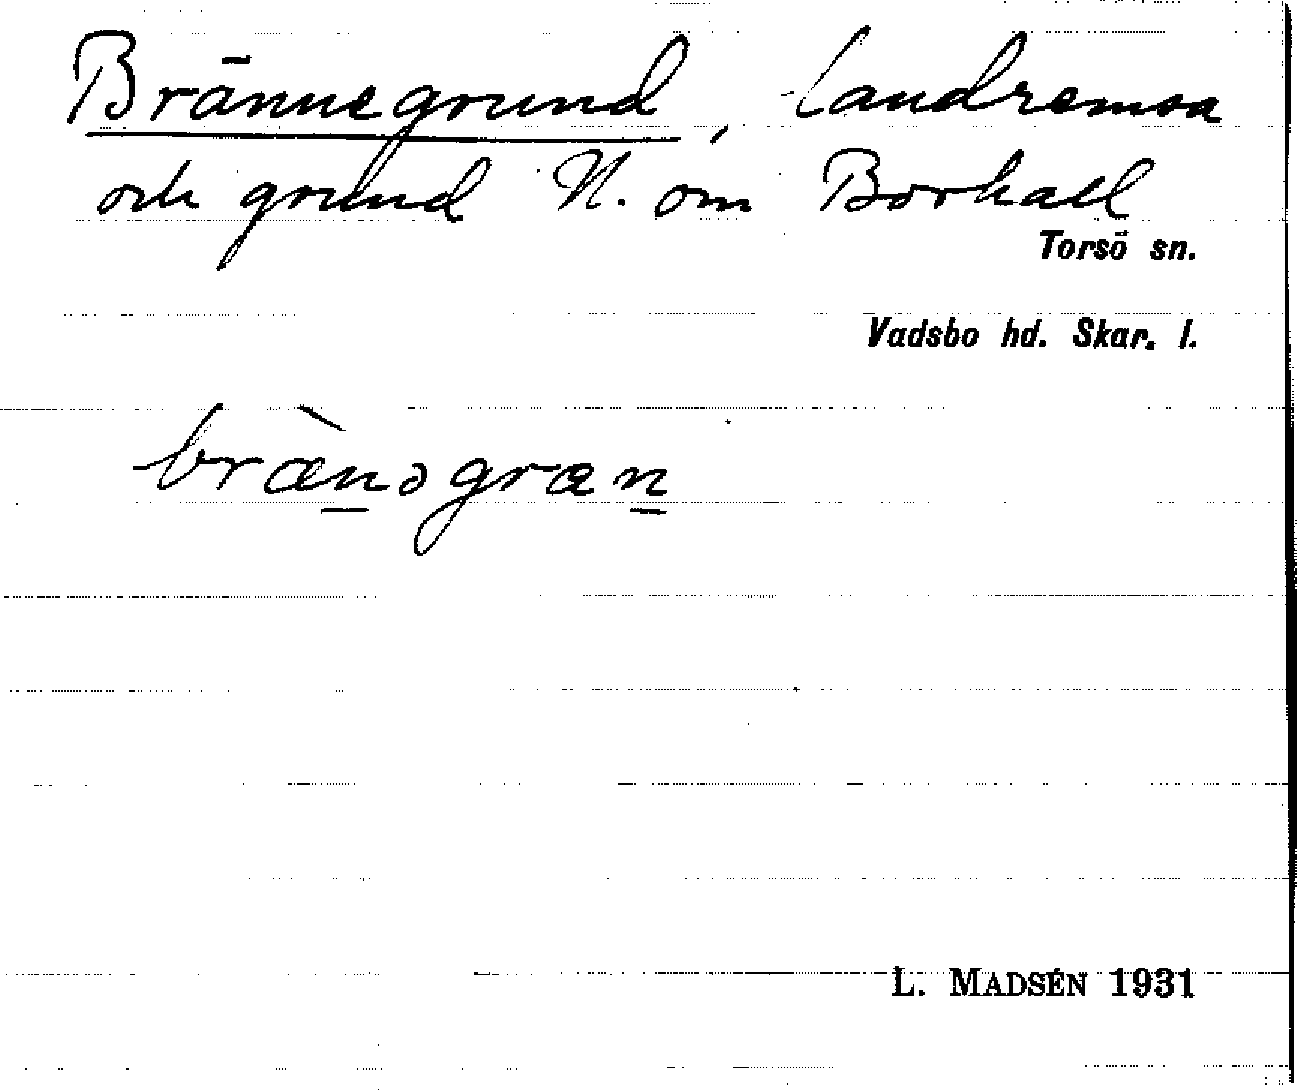 Brännegrund, landremsa
och grund N. om Borhall
Torsö sn.
Vadsbo hd. Skar. l.
bræ̀n̲əgræn̲
L. MADSÉN 1931